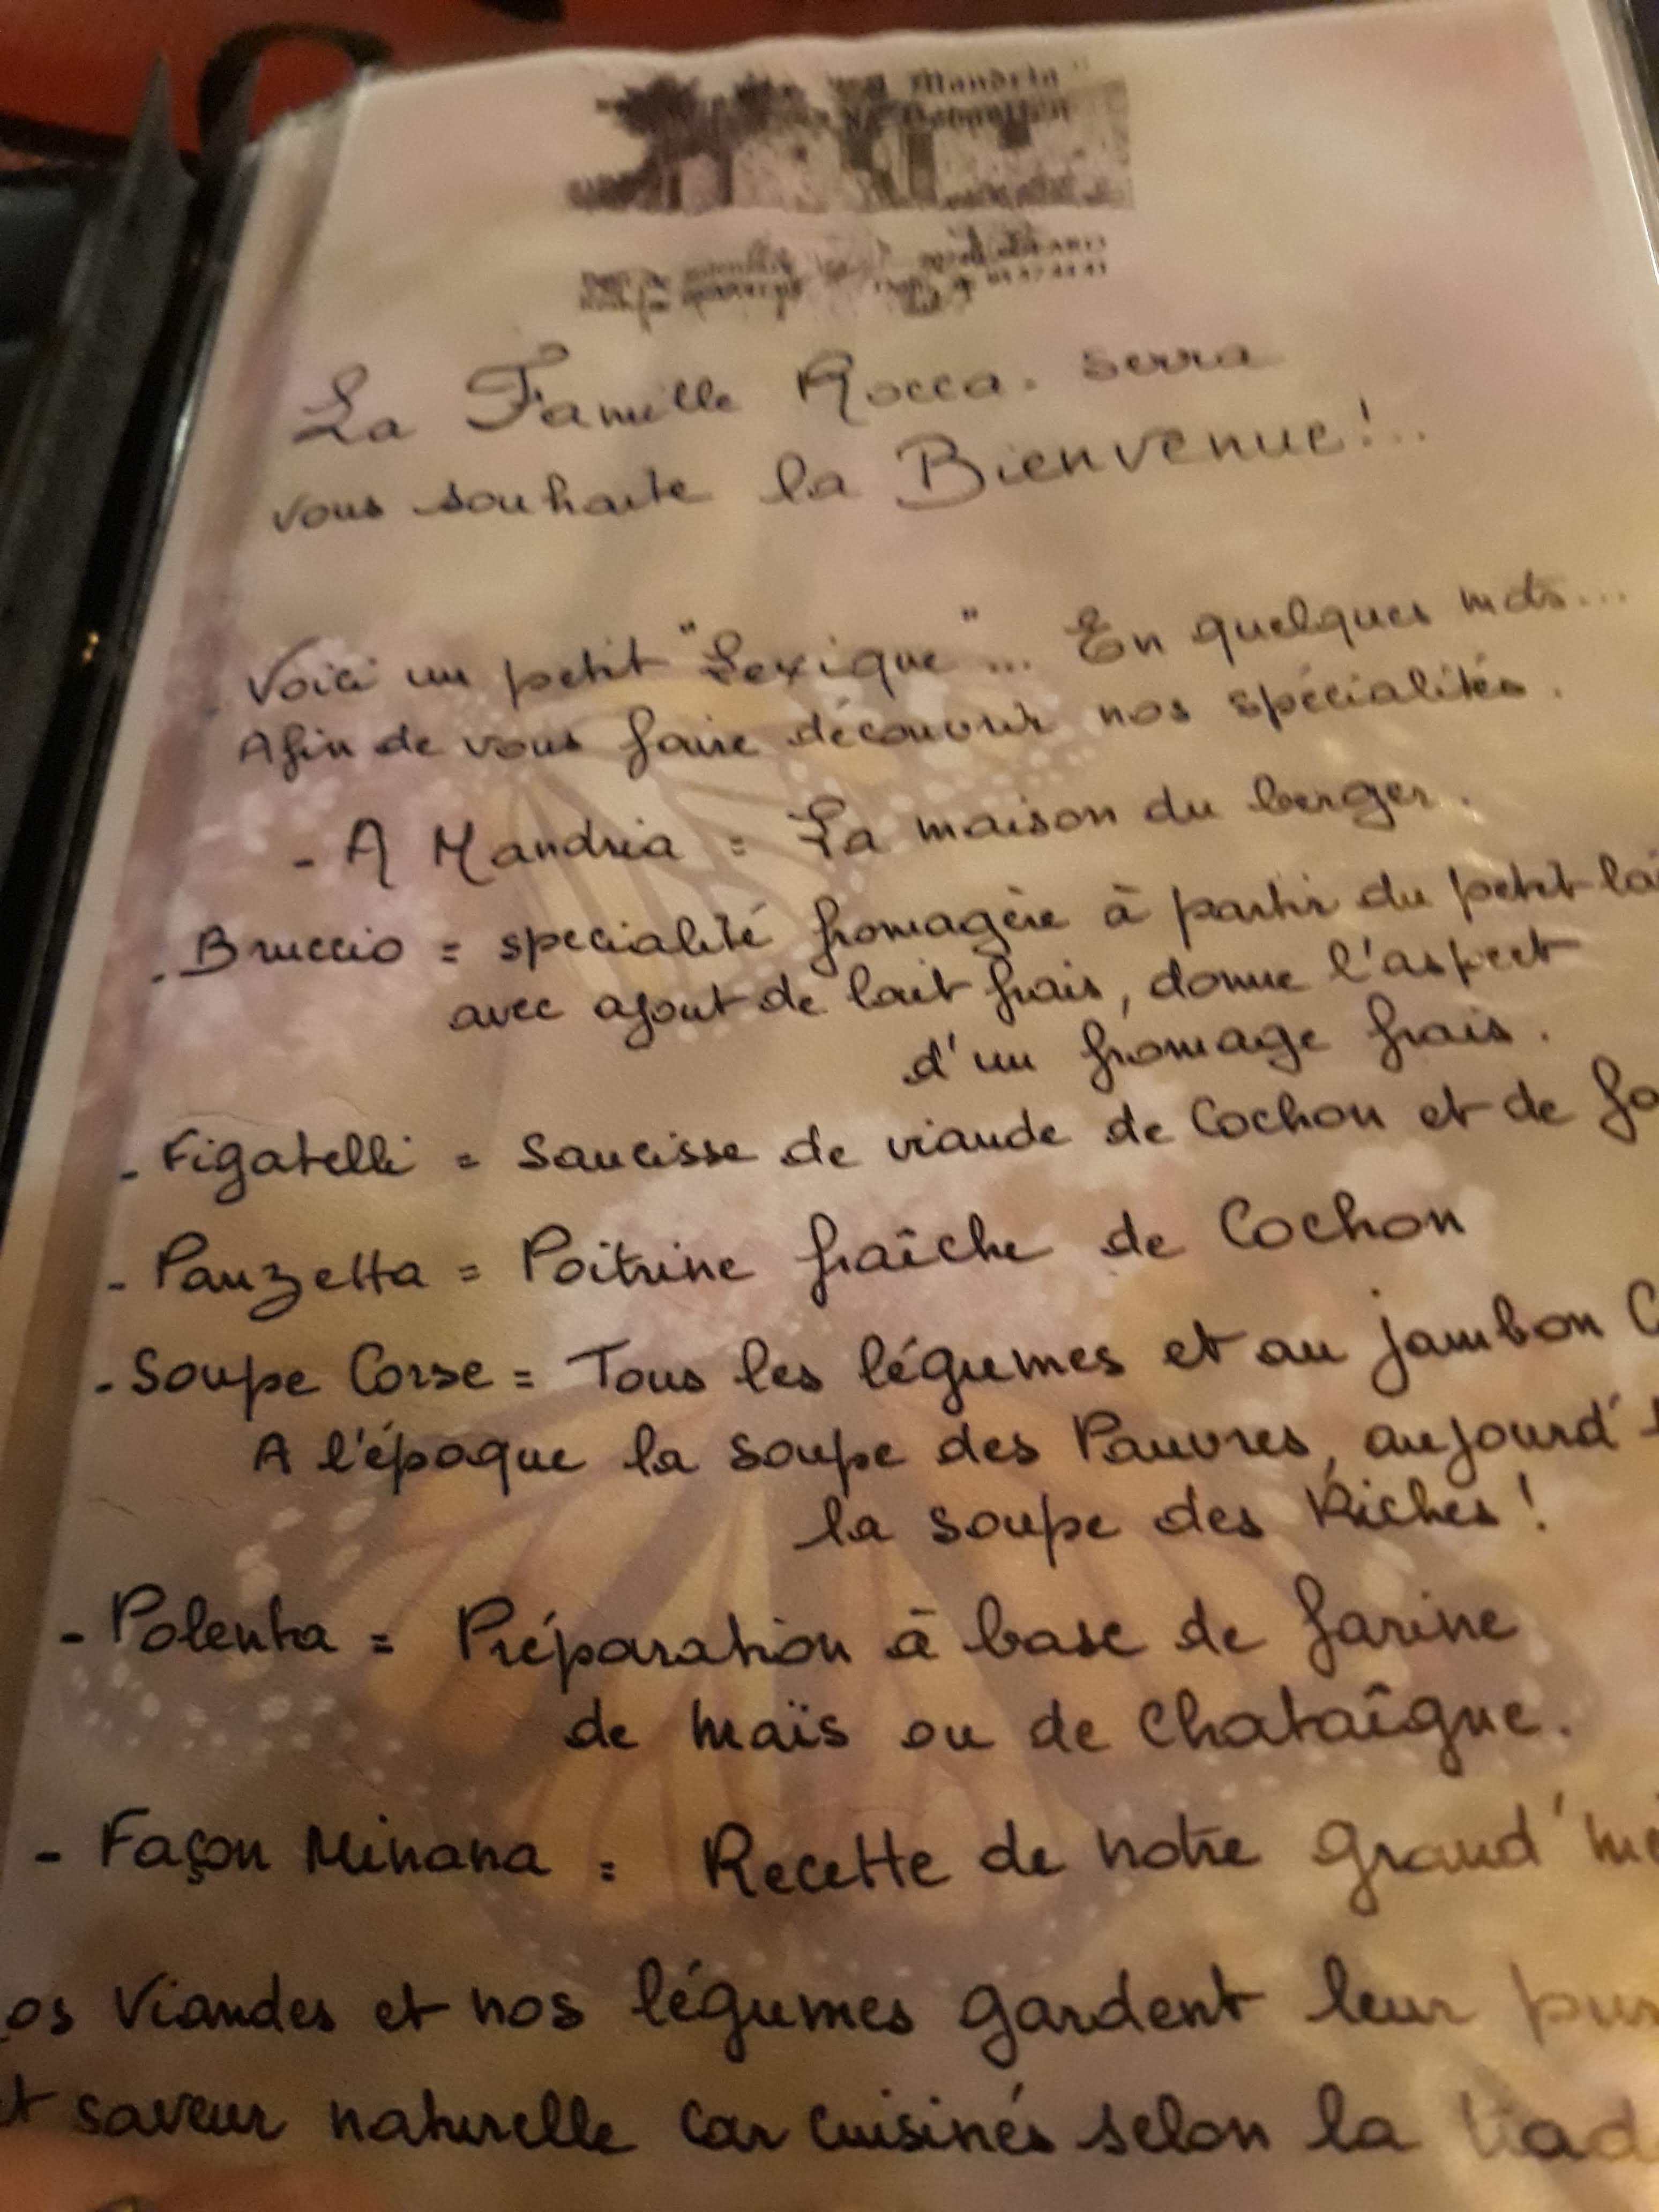 A Mandria
La Famille Rocca. Serra
vous souhaite la Bienvenue!..
Voici un petit "Lexique"... En quelques mots...
Afin de vous faire découvrir nos spécialités.
- A Mandria = La maison du berger.
- Bruccio = specialité fromagère à partir du petit-lai
avec ajout de lait frais, donne l'aspect
d'un fromage frais.
- Figatelli = Saucisse de viande de Cochon et de fo
- Panzetta = Poitrine fraîche de Cochon
- Soupe Corse = Tous les légumes et au jambon C
A l'époque la soupe des Pauvres, aujourd'
la soupe des Riches!
- Polenta = Préparation à base de farine
de maïs ou de Chataîgne.
- Façon Minana = Recette de notre grand'mè
os Viandes et nos légumes gardent leur pur
t saveur naturelle car cuisinés selon la trad